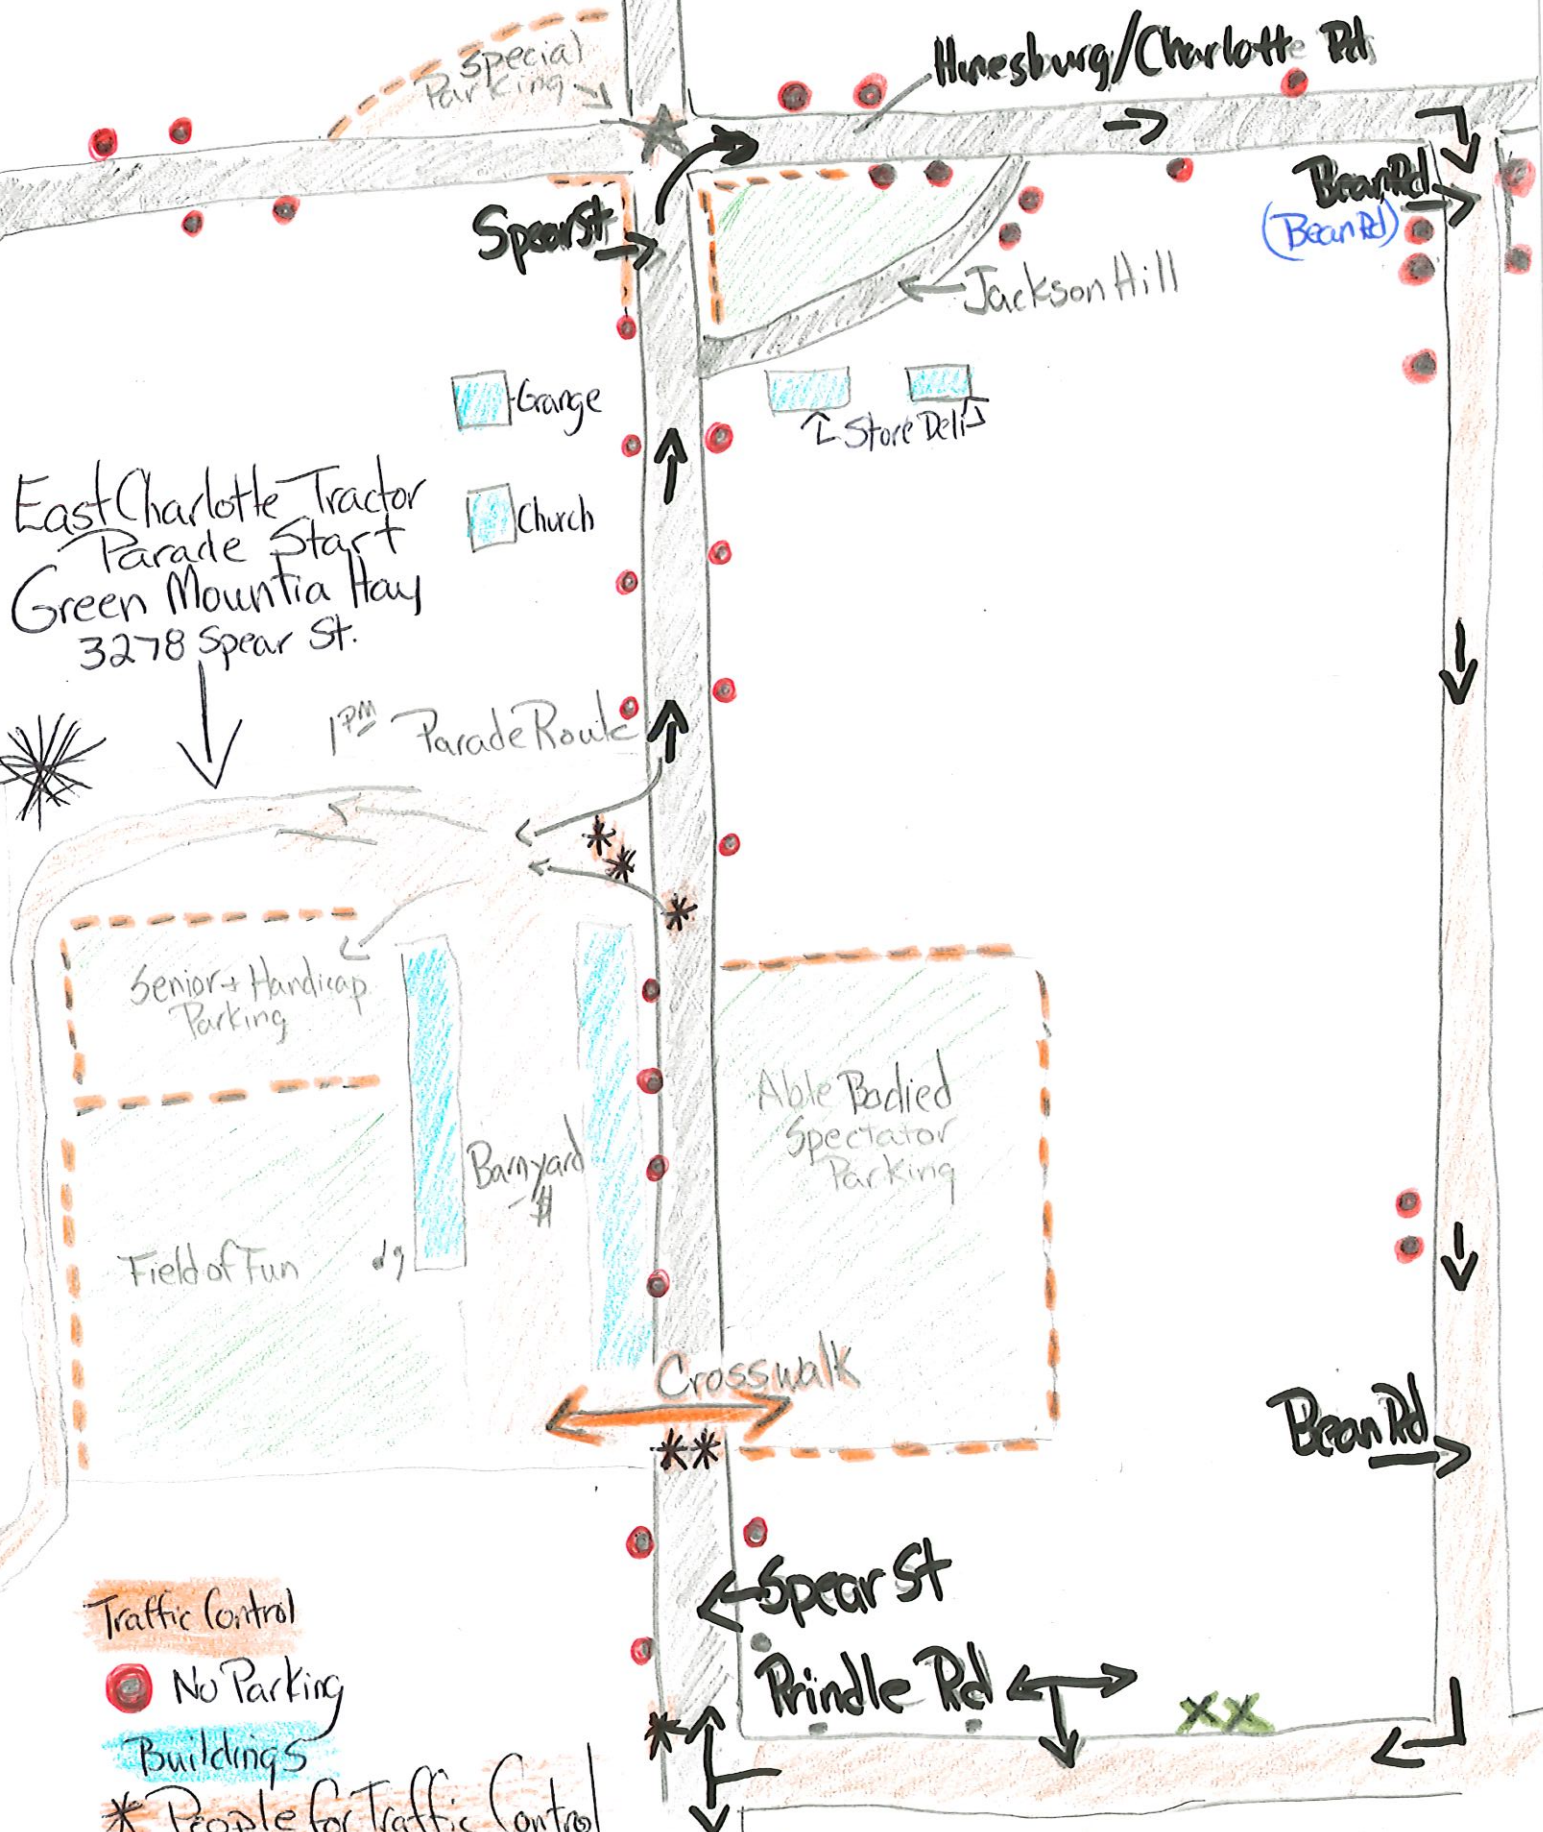 Special
Parking
Hinesburg/Charlotte Rd
Bean Rd
(Bean Rd)
Spear St
Jackson Hill
Grange
Store Deli
Church
East Charlotte Tractor
Parade Start
Green Mountia Hay
3278 Spear St.
1PM Parade Route
Senior + Handicap
Parking
Able Bodied
Spectator
Parking
Barnyard
$
Field of Fun
Crosswalk
Bean Rd
Spear St
Prindle Rd
XX
Traffic Control
No Parking
Buildings
* People for Traffic Control